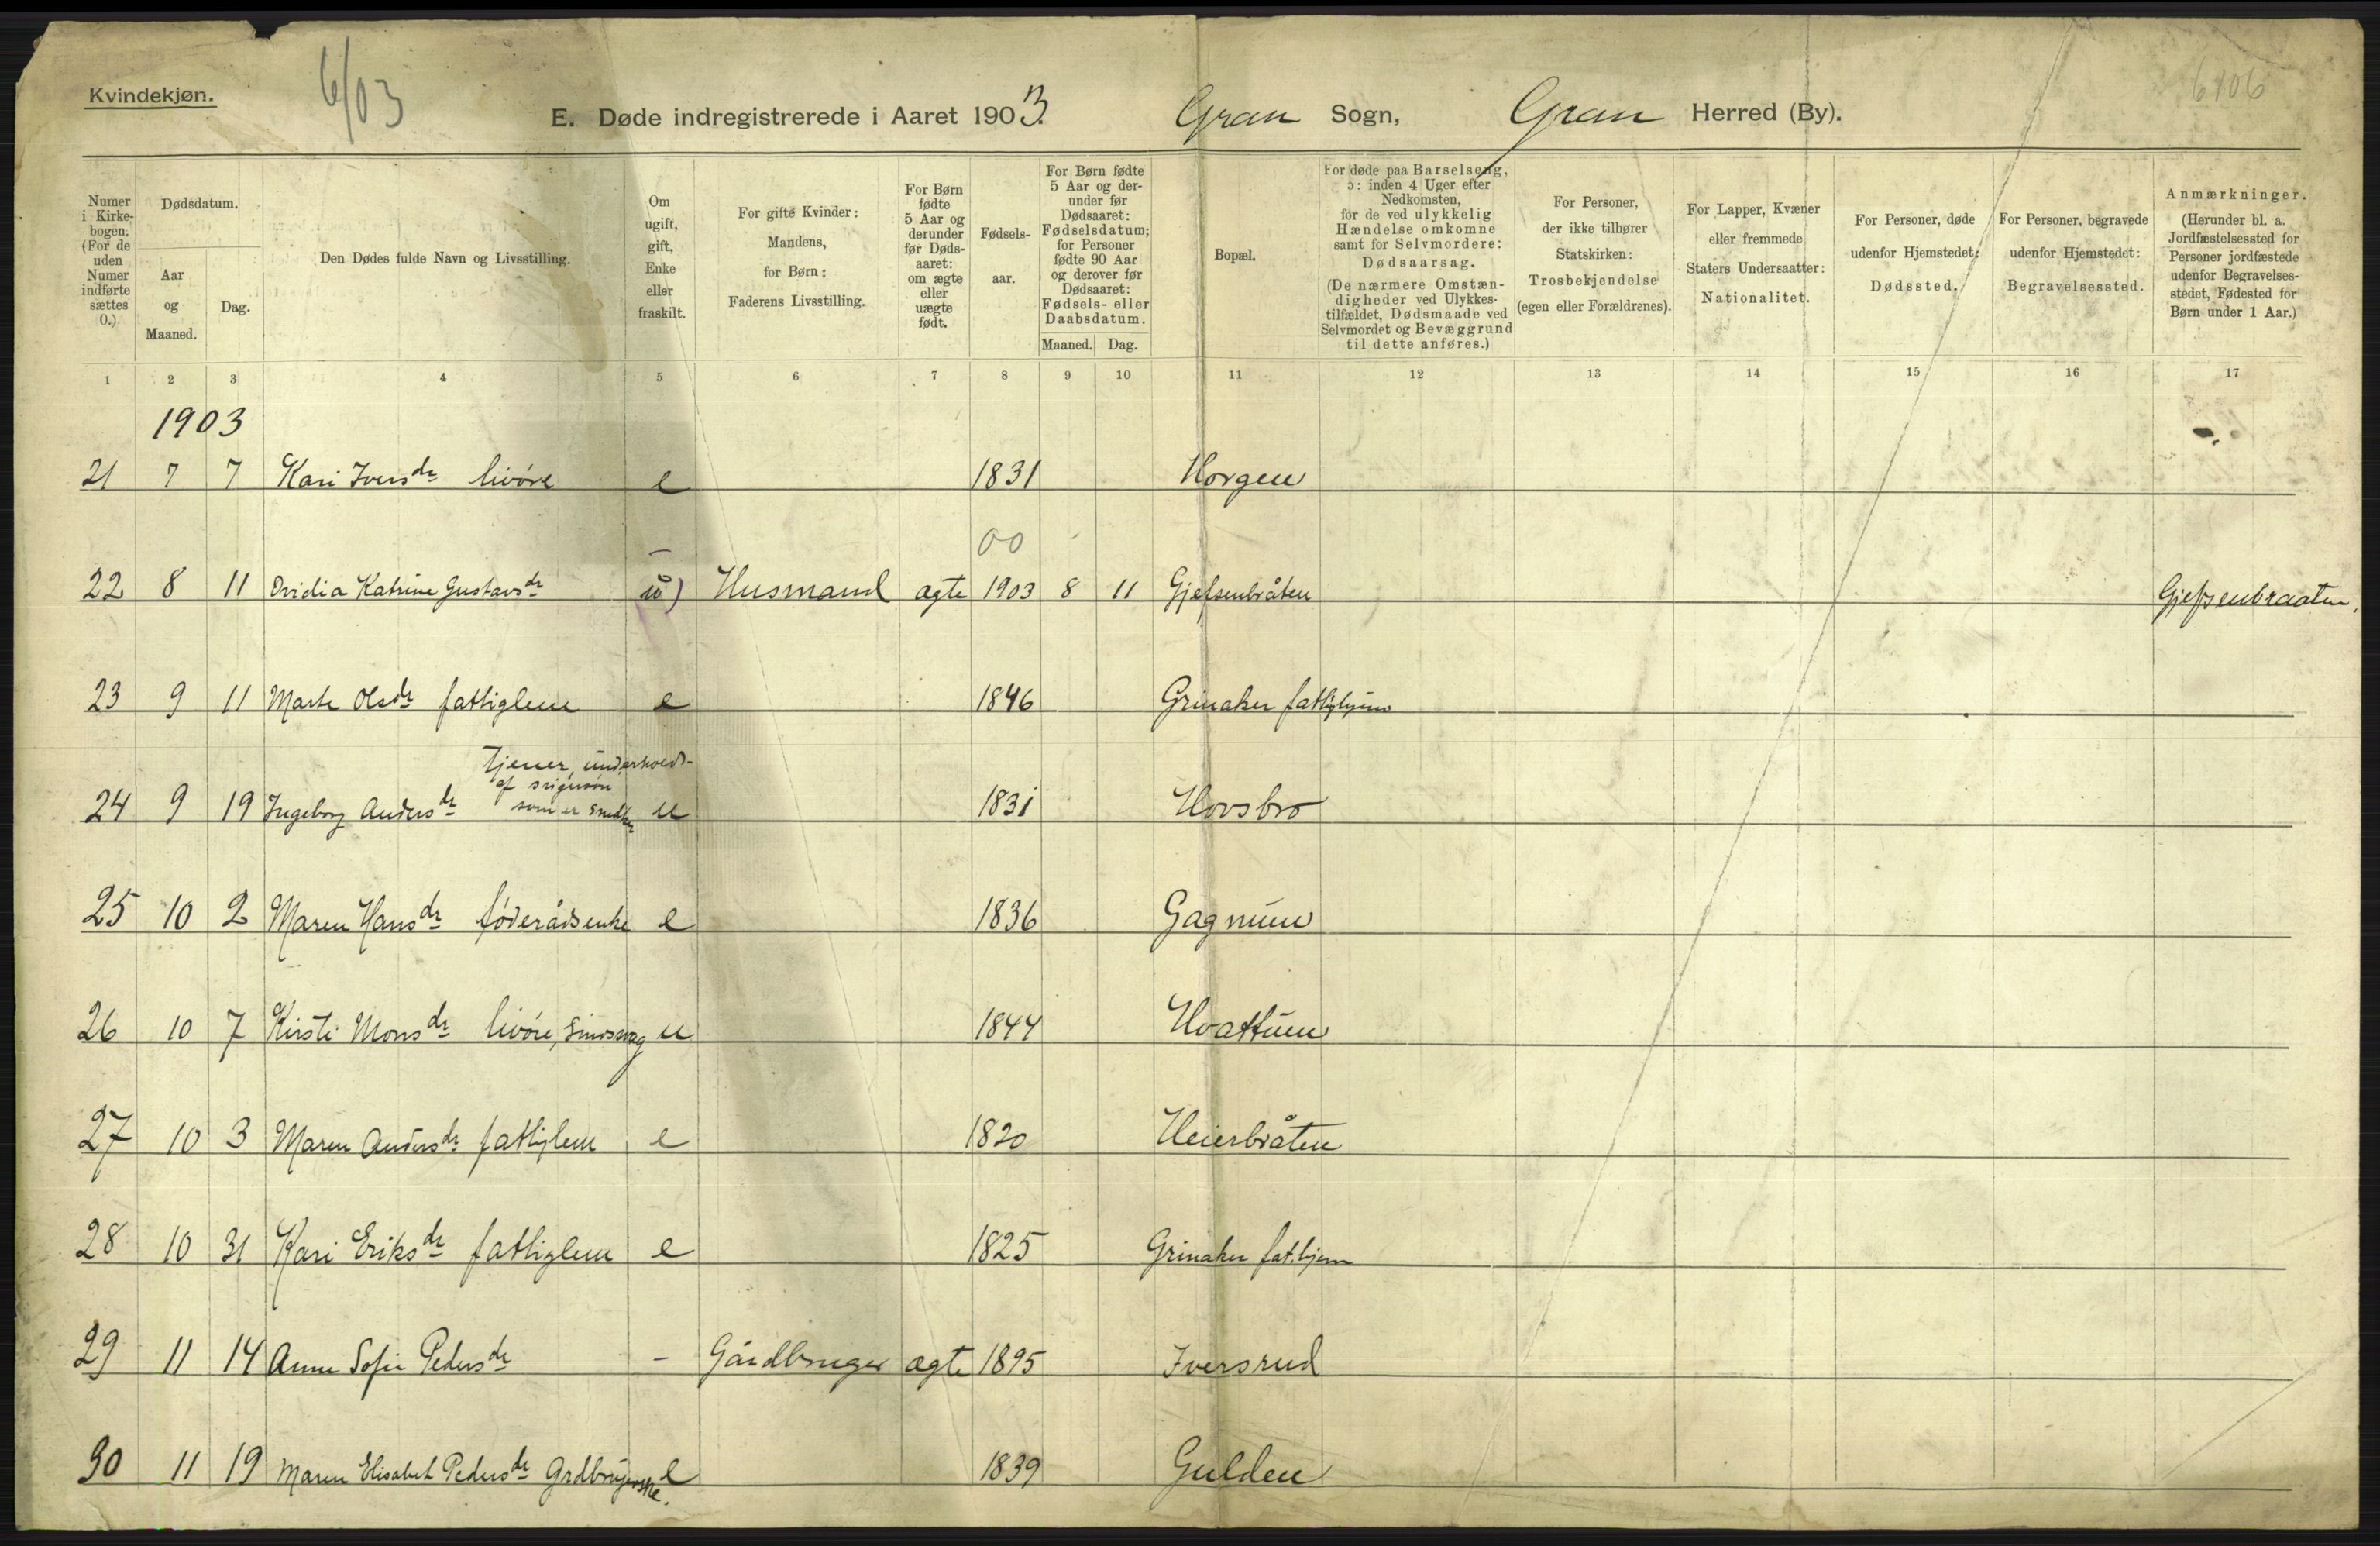 Kvindekjøn.
6/03
E. Døde indregistrerede i Aaret 1903. Gran Sogn, Gran Herred (By).
6106
Numer i Kirkebogen. (For de uden Numer indførte sættes 0.)
Dødsdatum.
Aar og Maaned.
Dag.
Den Dødes fulde Navn og Livsstilling.
Om ugift, gift, Enke eller fraskilt.
For gifte Kvinder: Mandens, for Børn: Faderens Livsstilling.
For Børn fødte 5 Aar og derunder før Dødsaaret: om ægte eller uægte født.
Fødselsaar.
For Børn fødte 5 Aar og derunder før Dødsaaret: Fødselsdatum; for Personer fødte 90 Aar og derover før Dødsaaret: Fødsels- eller Daabsdatum.
Maaned. Dag.
Bopæl.
For døde paa Barselseng, ɔ: inden 4 Uger efter Nedkomsten, for de ved ulykkelig Hændelse omkomne samt for Selvmordere: Dødsaarsag. (De nærmere Omstændigheder ved Ulykkestilfældet, Dødsmaade ved Selvmordet og Bevæggrund til dette anføres.)
For Personer, der ikke tilhører Statskirken: Trosbekjendelse (egen eller Forældrenes).
For Lapper, Kvæner eller fremmede Staters Undersaatter: Nationalitet.
For Personer, døde udenfor Hjemstedet: Dødssted.
For Personer, begravede udenfor Hjemstedet: Begravelsessted.
Anmærkninger. (Herunder bl. a. Jordfæstelsessted for Personer jordfæstede udenfor Begravelsesstedet, Fødested for Børn under 1 Aar.)
1 2 3 4 5 6 7 8 9 10 11 12 13 14 15 16 17
1903
21 7 7 Kari Iversdr livøre e 1831 Horgen
00
22 8 11 Ovidia Katrine Gustavsdr u) Husmand ægte 1903 8 11 Gjefsenbråten Gjefsenbraaten.
23 9 11 Marte Olsdr fattiglem e 1846 Grinaker fattighjem
Tjener, underholdt
af svigersøn
24 9 19 Ingeborg Andersdr som er snedker u 1831 Hovsbro
25 10 2 Maren Hansdr føderådsenke e 1836 Gagnum
26 10 7 Kirsti Monsdr livøre, sindssvag u 1844 Hvattum
27 10 3 Maren Andersdr fattiglem e 1820 Heierbråten
28 10 31 Kari Eriksdr fattiglem e 1825 Grinaker fat.hjem
29 11 14 Anne Sofie Pedersdr - Gårdbruger ægte 1895 Iversrud
30 11 19 Maren Elisabet Pedersdr Grdbrugerske. e 1839 Gulden